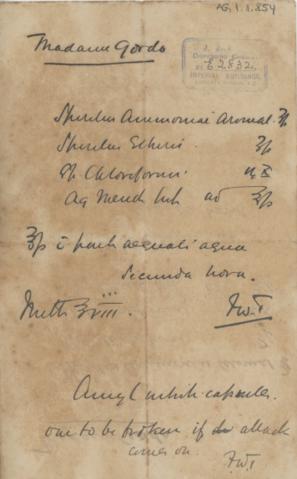 PG.1.1.854
Madame Gordo
62832
IMPERIAL BUILDINGS,
Spiritus Ammoniae Aromat. ʒ
Spiritus Etheris. ʒp
Sp Chloroformi ♏ X
Aq Menth Pip ad ℥p
℥p c̄ parte aequali aqua
Secunda hora.
Mitte ℥viii. Fw.T
Amyl nitrite capsules.
one to be broken if attack
comes on.
FwT